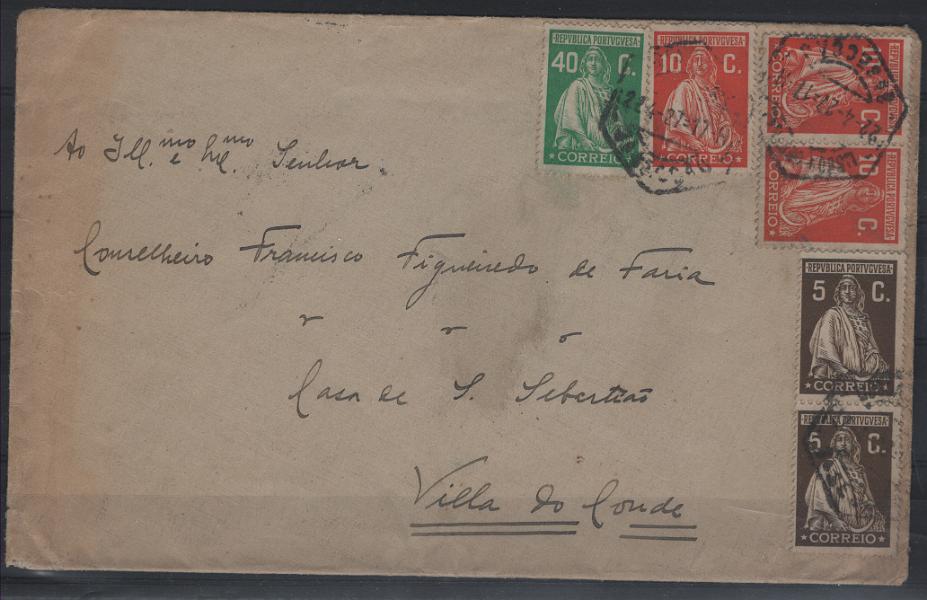 REPVBLICA PORTVGVESA
40 C.
CORREIO
REPVBLICA PORTVGVESA
10 C.
CORREIO
22-4-27-17
REPVBLICA PORTVGVESA
10 C.
CORREIO
22-4-27-17
REPVBLICA PORTVGVESA
10 C.
CORREIO
REPVBLICA PORTVGVESA
5 C.
CORREIO
REPVBLICA PORTVGVESA
5 C.
CORREIO
Ao Ill.mo e Senhor
Conselheiro Francisco Figueiredo de Faria
Casa de S. Sebastião
Villa do Conde